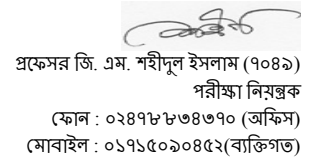 প্রফেসর জি. এম. শহীদুল ইসলাম (৭০৪৯)
পরীক্ষা নিয়ন্ত্রক
ফোন : ০২৪৭৮৮৩৪৩৭০ (অফিস)
মোবাইল : ০১৭১৫০৯০৪৫২(ব্যক্তিগত)